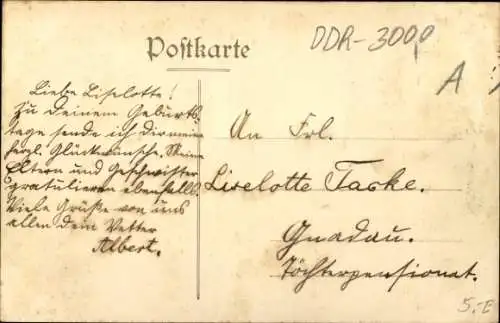 Postkarte
DDR-3000
A
Liebe Liselotte!
Zu deinem Geburts-
tage sende ich dir meine
herzl. Glückwünsche. Meine
Eltern und Geschwister
gratulieren ebenfalls.
Viele Grüße von uns
allen dem Vetter
Albert.
An Frl.
Liselotte Taske.
Gnadau.
Töchterpensionat.
5,-E